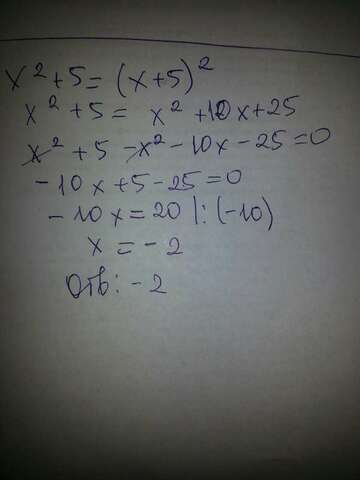 x² + 5 = (x+5)²
x² + 5 = x² + 10x + 25
x² + 5 - x² - 10x - 25 = 0
- 10x + 5 - 25 = 0
- 10x = 20 |: (-10)
x = - 2
Отв: - 2